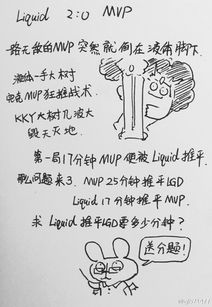 Liquid 2:0 MVP
一路无敌的MVP突然就倒在液体脚下.
液体一手大树
克MVP狂推战术.
KKY大树几波大
毁天灭地.
第一局17分钟MVP便被Liquid推平.
那么问题来了. MVP 25分钟推平LGD
Liquid 17分钟推平MVP.
求Liquid推平LGD要多少分钟?
送分题!